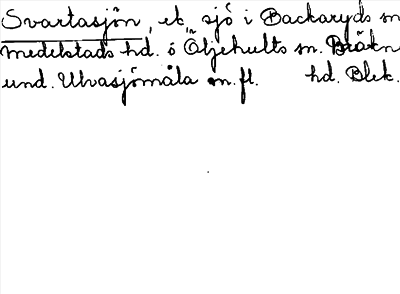 Svartasjön, ek, sjö i Backaryds sn
medelstads hd. ö Öljehults sn. Bräkn
und. Ulvasjömåla m.fl. hd. Blek.